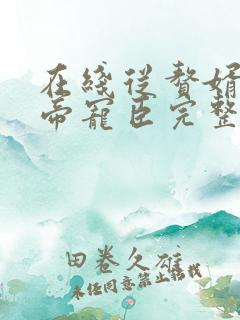 在线从赘婿
帝宠臣完整
田卷久雄
未经同意禁止转载